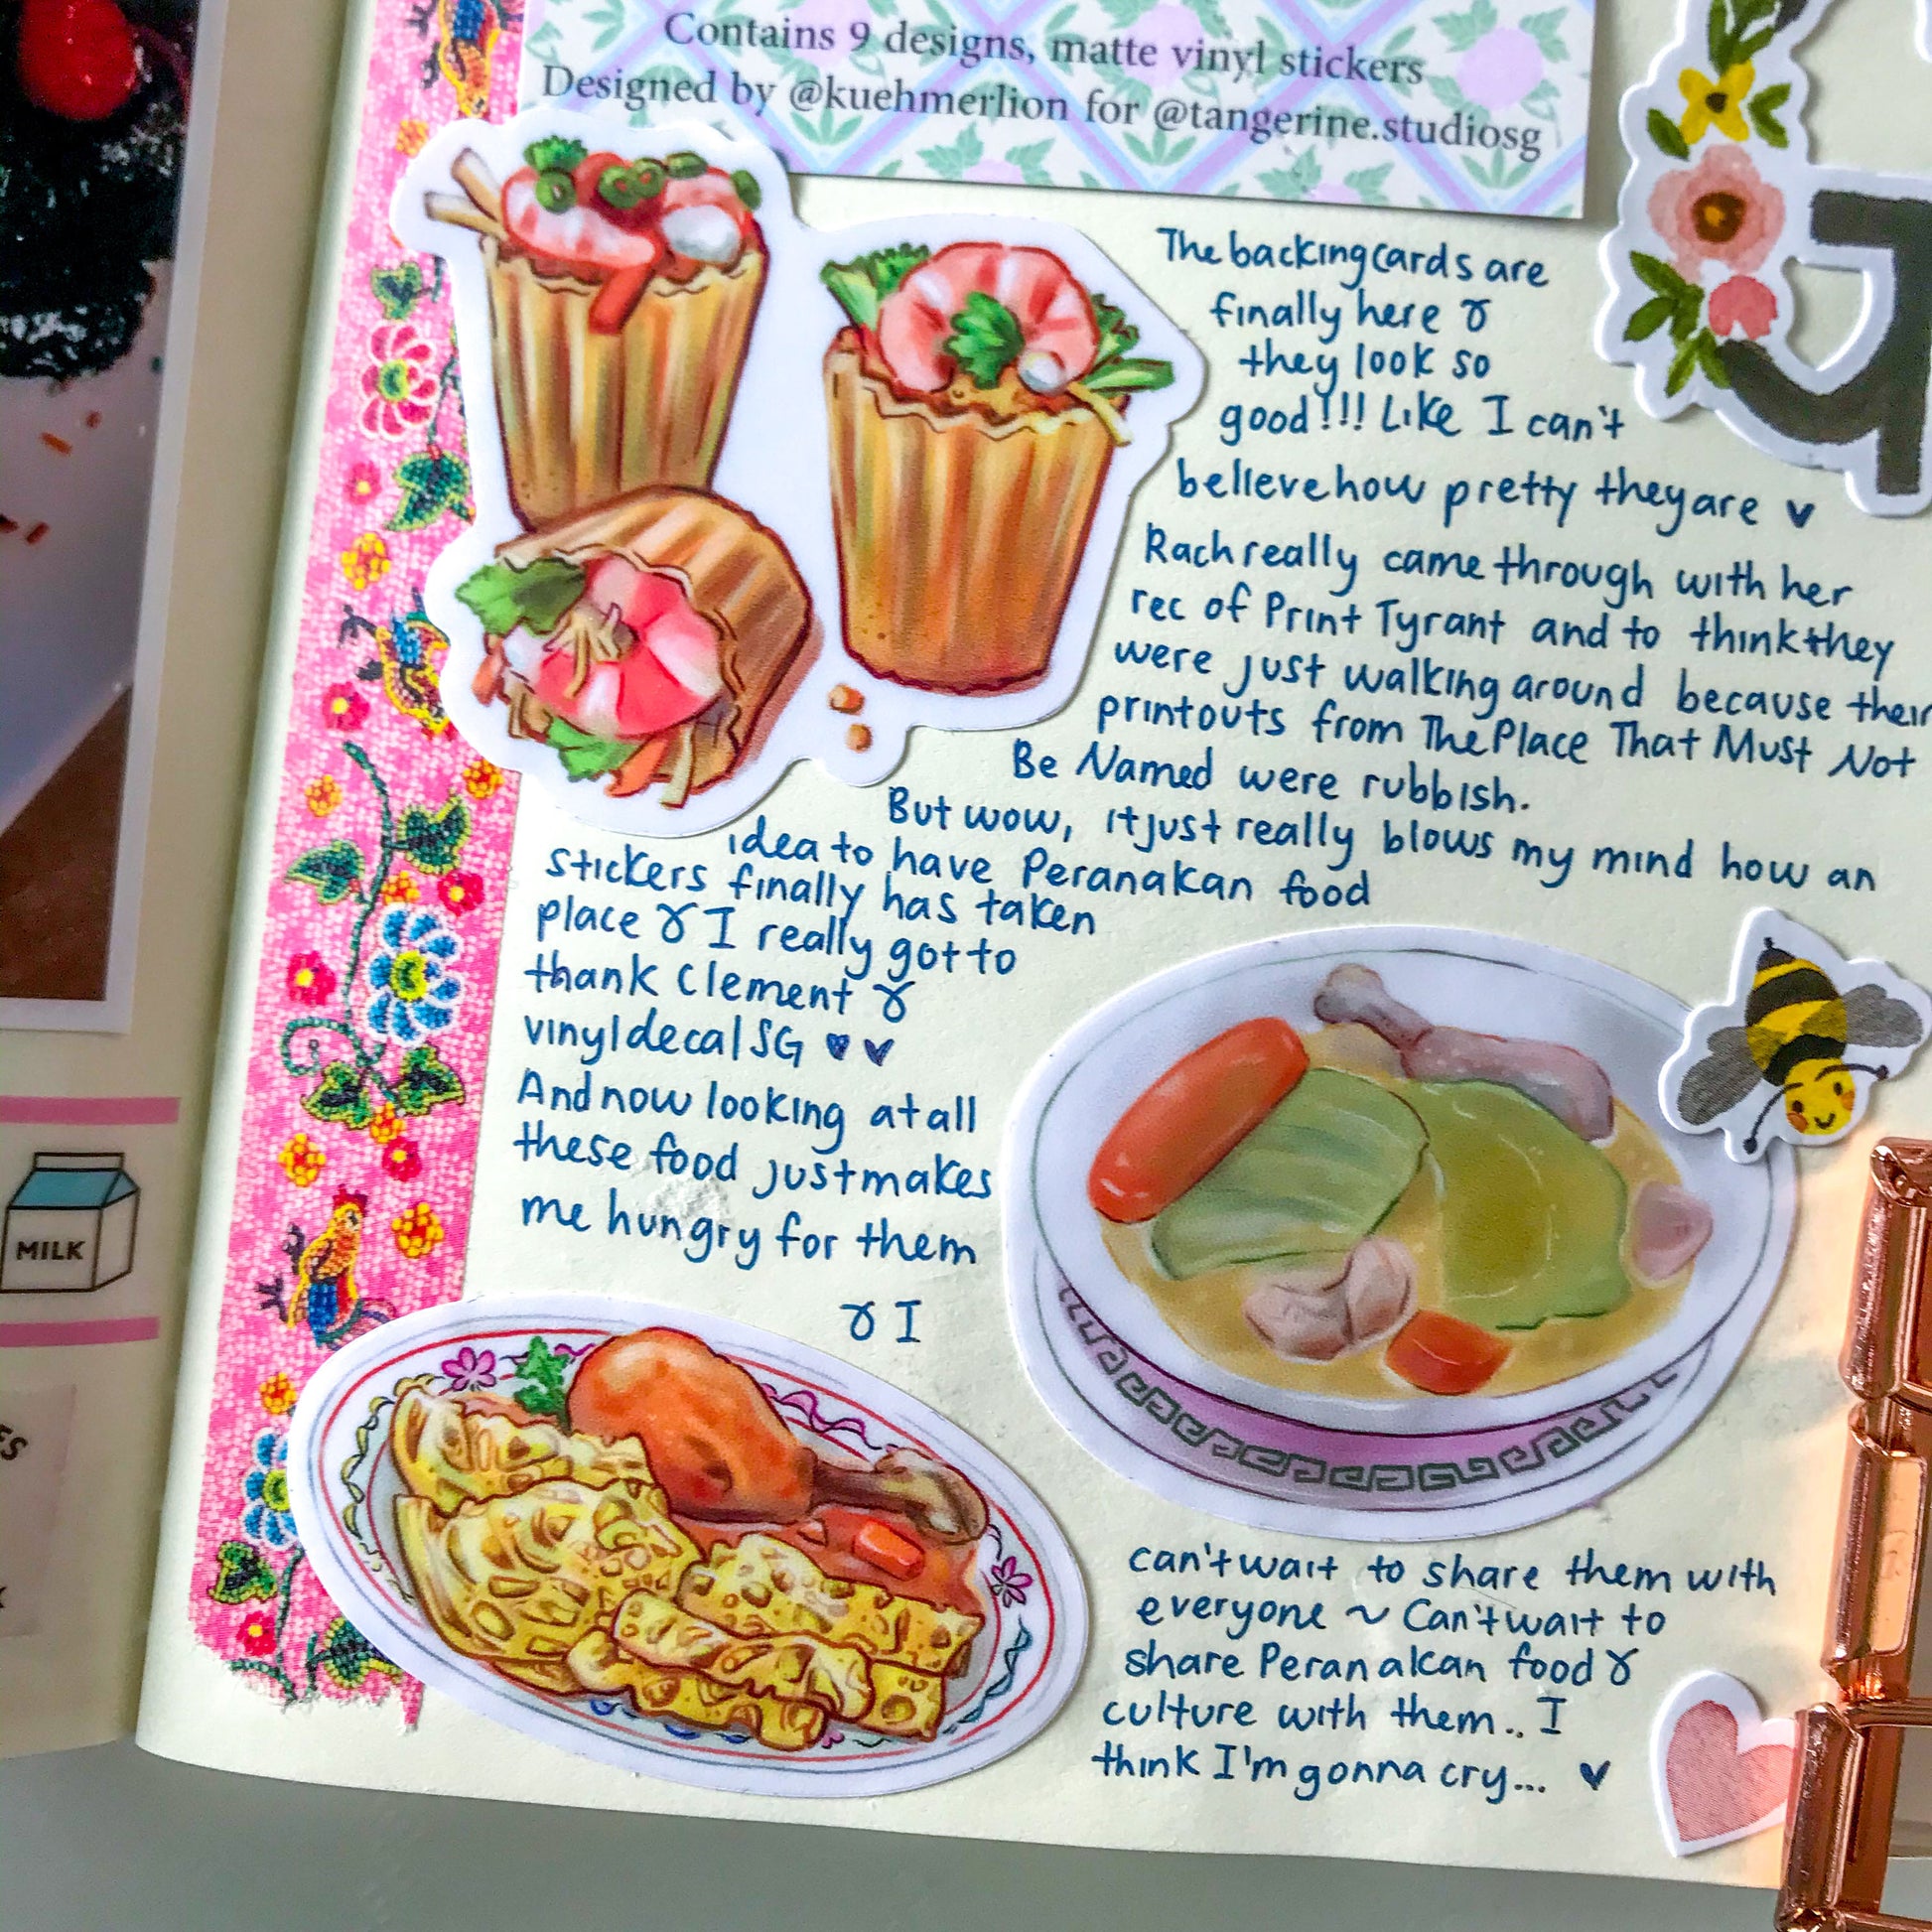 Contains 9 designs, matte vinyl stickers
Designed by @kuehmerlion for @tangerine.studiosg
The backing cards are
finally here &
they look so
good!!! Like I can't
believe how pretty they are ♥
Rach really came through with her
rec of Print Tyrant and to think they
were just walking around because their
printouts from The Place That Must Not
Be Named were rubbish.
But wow, it just really blows my mind how an
idea to have Peranakan food
stickers finally has taken
place & I really got to
thank Clement &
vinyldecalSG ♥♥
And now looking at all
these food just makes
me hungry for them
& I
can't wait to share them with
everyone ~ Can't wait to
share Peranakan food &
culture with them.. I
think I'm gonna cry... ♥
MILK